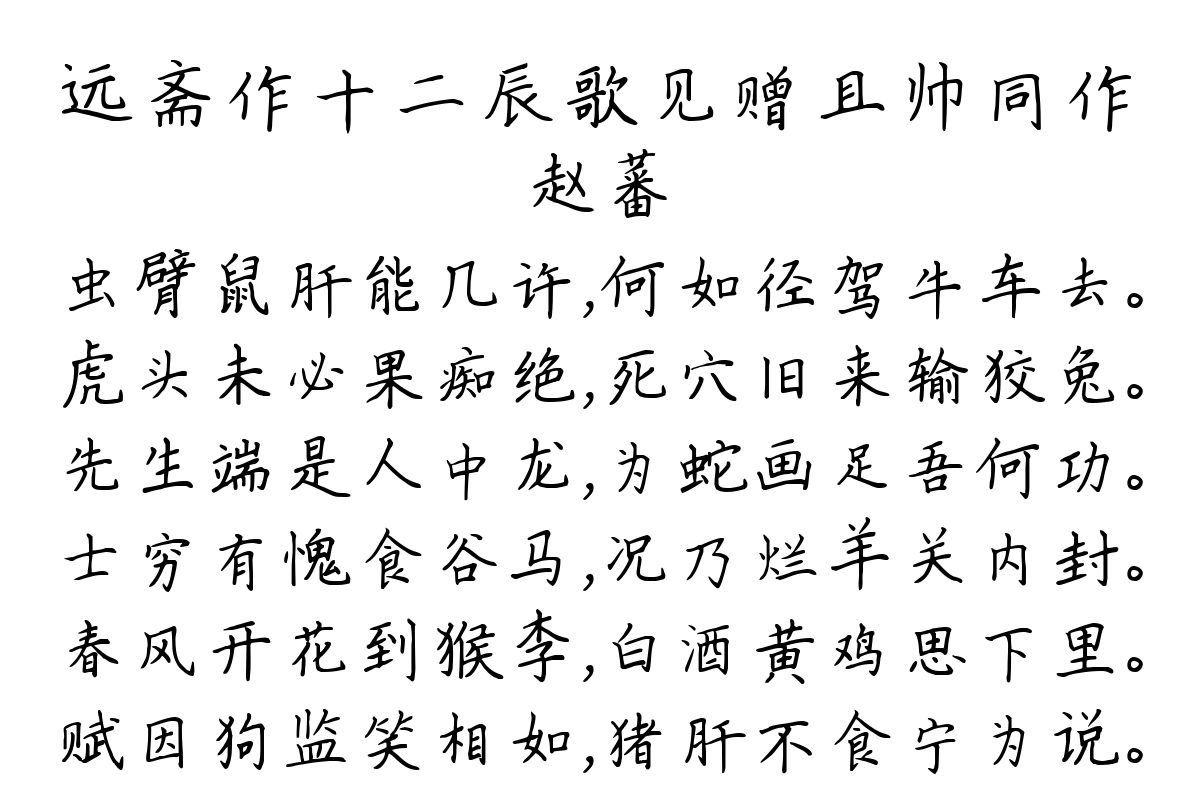 远斋作十二辰歌见赠且帅同作
赵蕃
虫臂鼠肝能几许,何如径驾牛车去。
虎头未必果痴绝,死穴旧来输狡兔。
先生端是人中龙,为蛇画足吾何功。
士穷有愧食谷马,况乃烂羊关内封。
春风开花到猴李,白酒黄鸡思下里。
赋因狗监笑相如,猪肝不食宁为说。